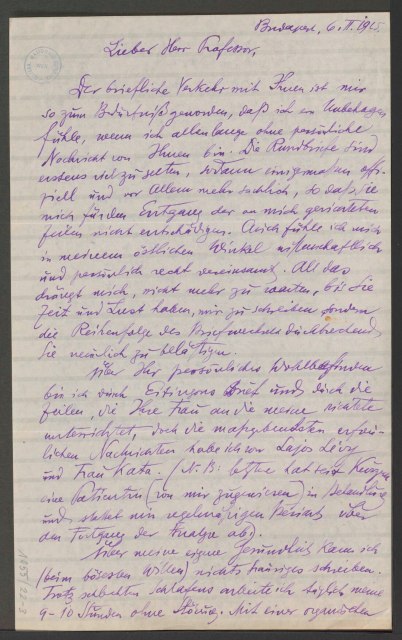 Budapest, 6. II. 1925.
Lieber Herr Professor,
Der briefliche Verkehr mit Ihnen ist mir
so zum Bedürfniß geworden, daß ich ein Unbehagen
fühle, wenn ich allzulange ohne persönliche
Nachricht von Ihnen bin. Die Rundbriefe sind
erstens viel zu selten, sodann einigermaßen offi-
ziell und vor Allem mehr sachlich, so daß sie
mich für den Entgang der an mich gerichteten
Zeilen nicht entschädigen. Auch fühle ich mich
in meinem östlichen Winkel wissenschaftlich
und persönlich recht vereinsamt. All das
drängt mich, nicht mehr zu warten, bis Sie
Zeit und Lust haben, mir zu schreiben sondern
die Reihenfolge des Briefwechsels durchbrechend,
Sie neuerlich zu belästigen.
Über Ihr persönliches Wohlbefinden
bin ich durch Eitingons Brief und durch die
Zeilen, die Ihre Frau an die meine richtete
unterrichtet, doch die maßgebendsten erfreu-
lichen Nachrichten habe ich von Lajos Lévy
und Frau Kata. (N.B: letztere hat seit Kurzem
eine Patientin (von mir zugewiesen) in Behandlung
und stattet mir regelmäßigen Bericht über
den Fortgang der Analyse ab).
Über meine eigene Gesundheit kann ich
(beim bösesten Willen) nichts trauriges schreiben.
Trotz schlechten Schlafens arbeite ich täglich meine
9-10 Stunden ohne Störung. Mit einer organischen